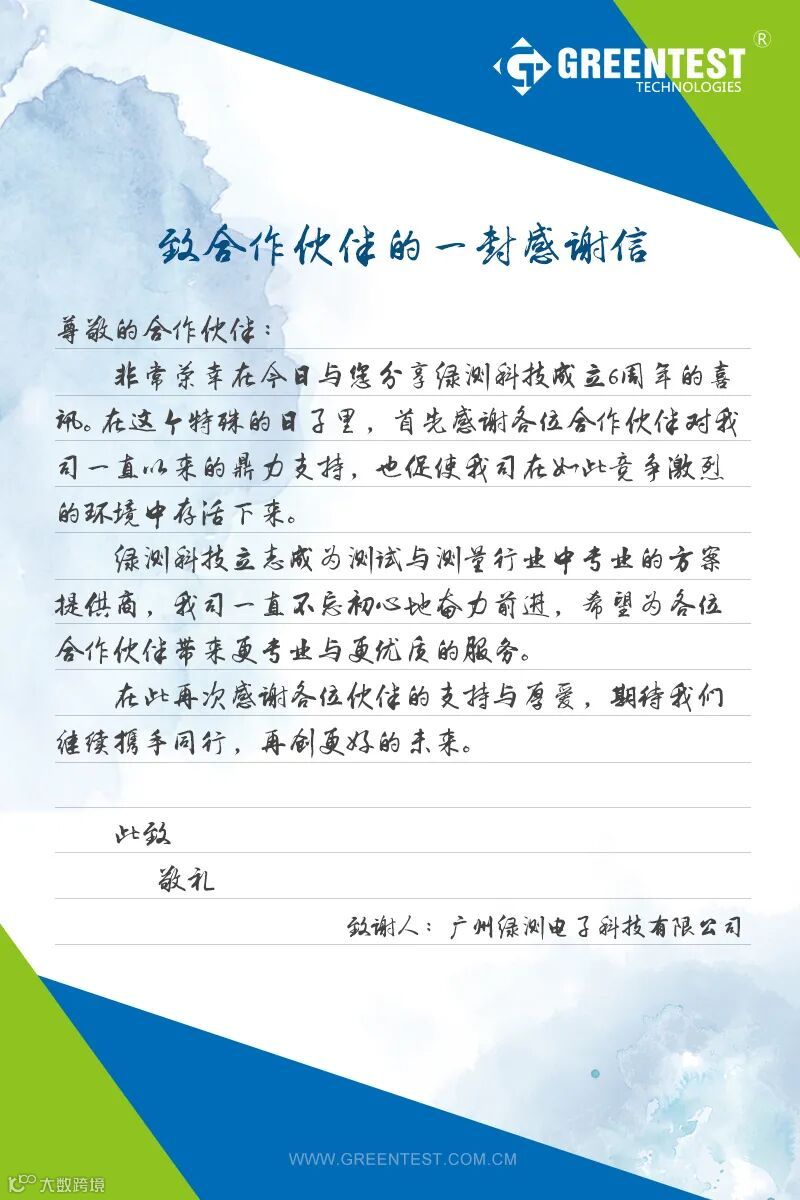 GREENTEST®
TECHNOLOGIES
致合作伙伴的一封感谢信
尊敬的合作伙伴：
非常荣幸在今日与您分享绿测科技成立6周年的喜
讯。在这个特殊的日子里，首先感谢各位合作伙伴对我
司一直以来的鼎力支持，也促使我司在如此竞争激烈
的环境中存活下来。
绿测科技立志成为测试与测量行业中专业的方案
提供商，我司一直不忘初心地奋力前进，希望为各位
合作伙伴带来更专业与更优质的服务。
在此再次感谢各位伙伴的支持与厚爱，期待我们
继续携手同行，再创更好的未来。
此致
敬礼
致谢人：广州绿测电子科技有限公司
WWW.GREENTEST.COM.CM
大数跨境